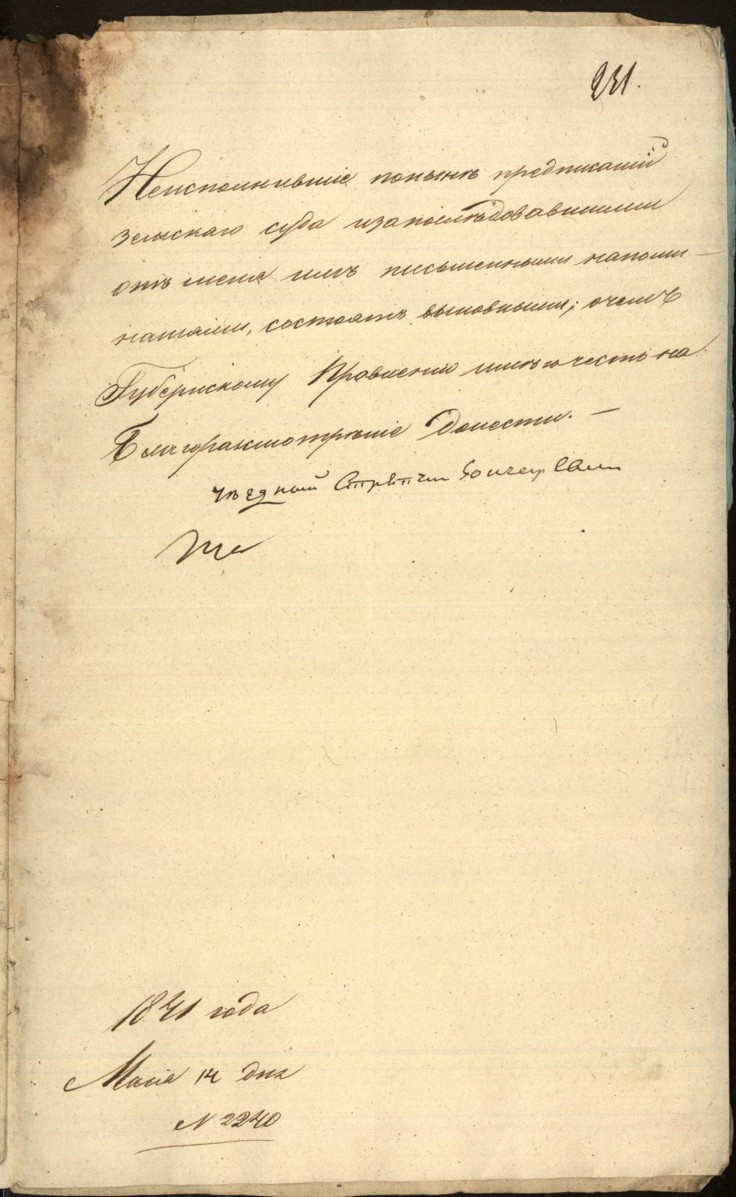 231.
Неисполнившие поныне предписаний
земскаго суда изапоследовавшими
отъ меня имъ письменными напоми-
наниями, состоятъ виновными; очемъ
Губернскому Правлению имею честь на
Благоразсмотрение Донести. —
уездный Стряпчий
1841 года
Маия 14 дня
N 2240